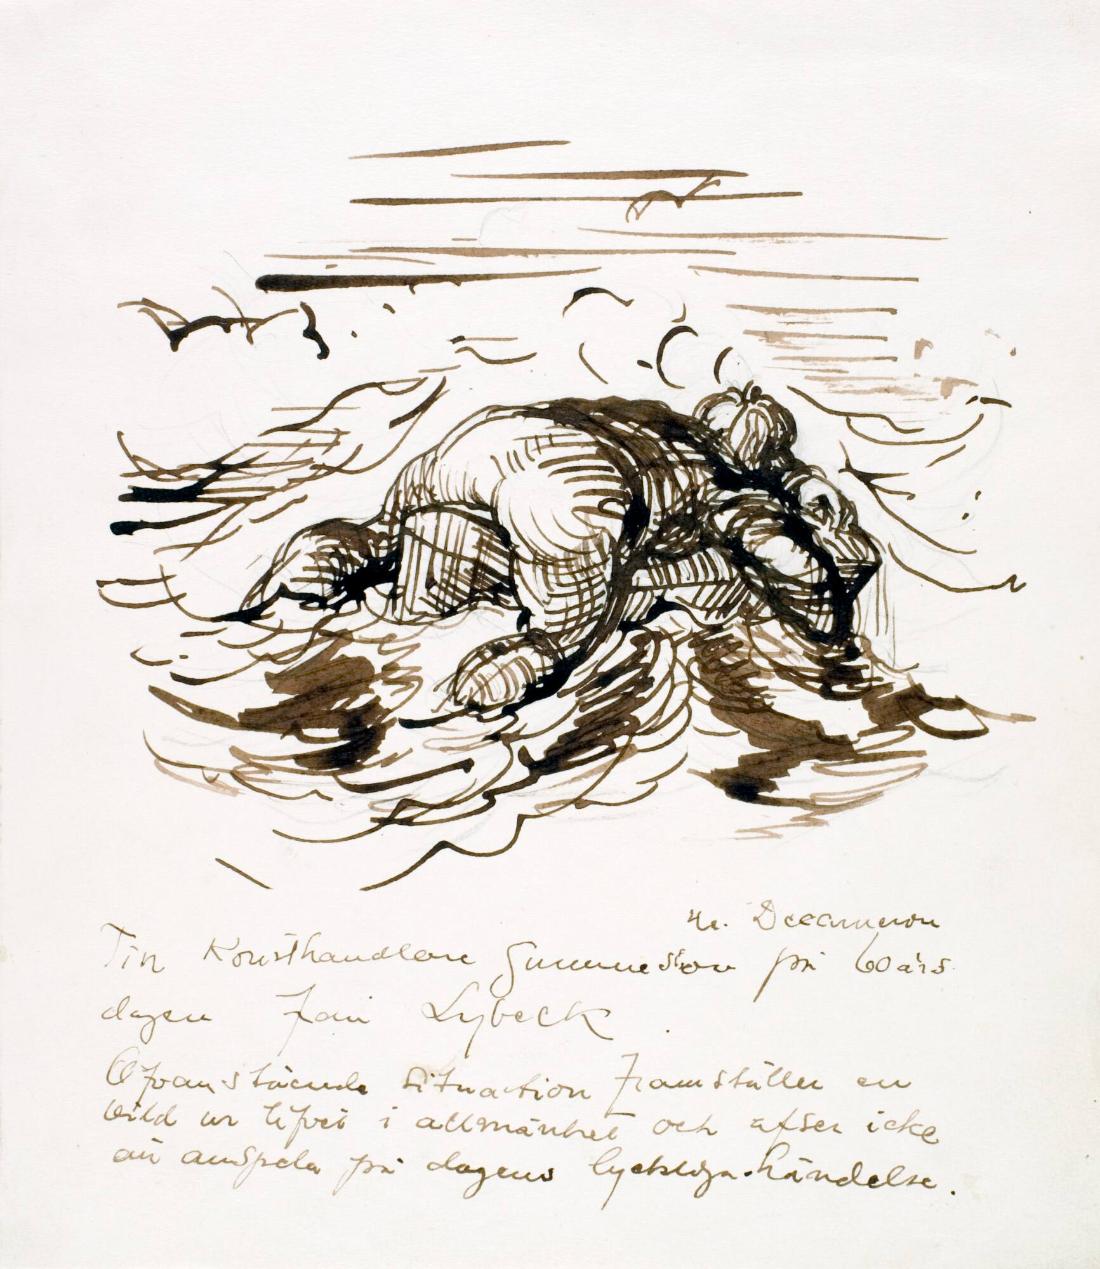 ur. Decameron
Till Konsthandlare Gummeson på 60 års
dagen från Lybeck.
Ofvanstående situation framställer en
bild ur lifvet i allmänhet och afser icke
att anspela på dagens lyckliga händelse.